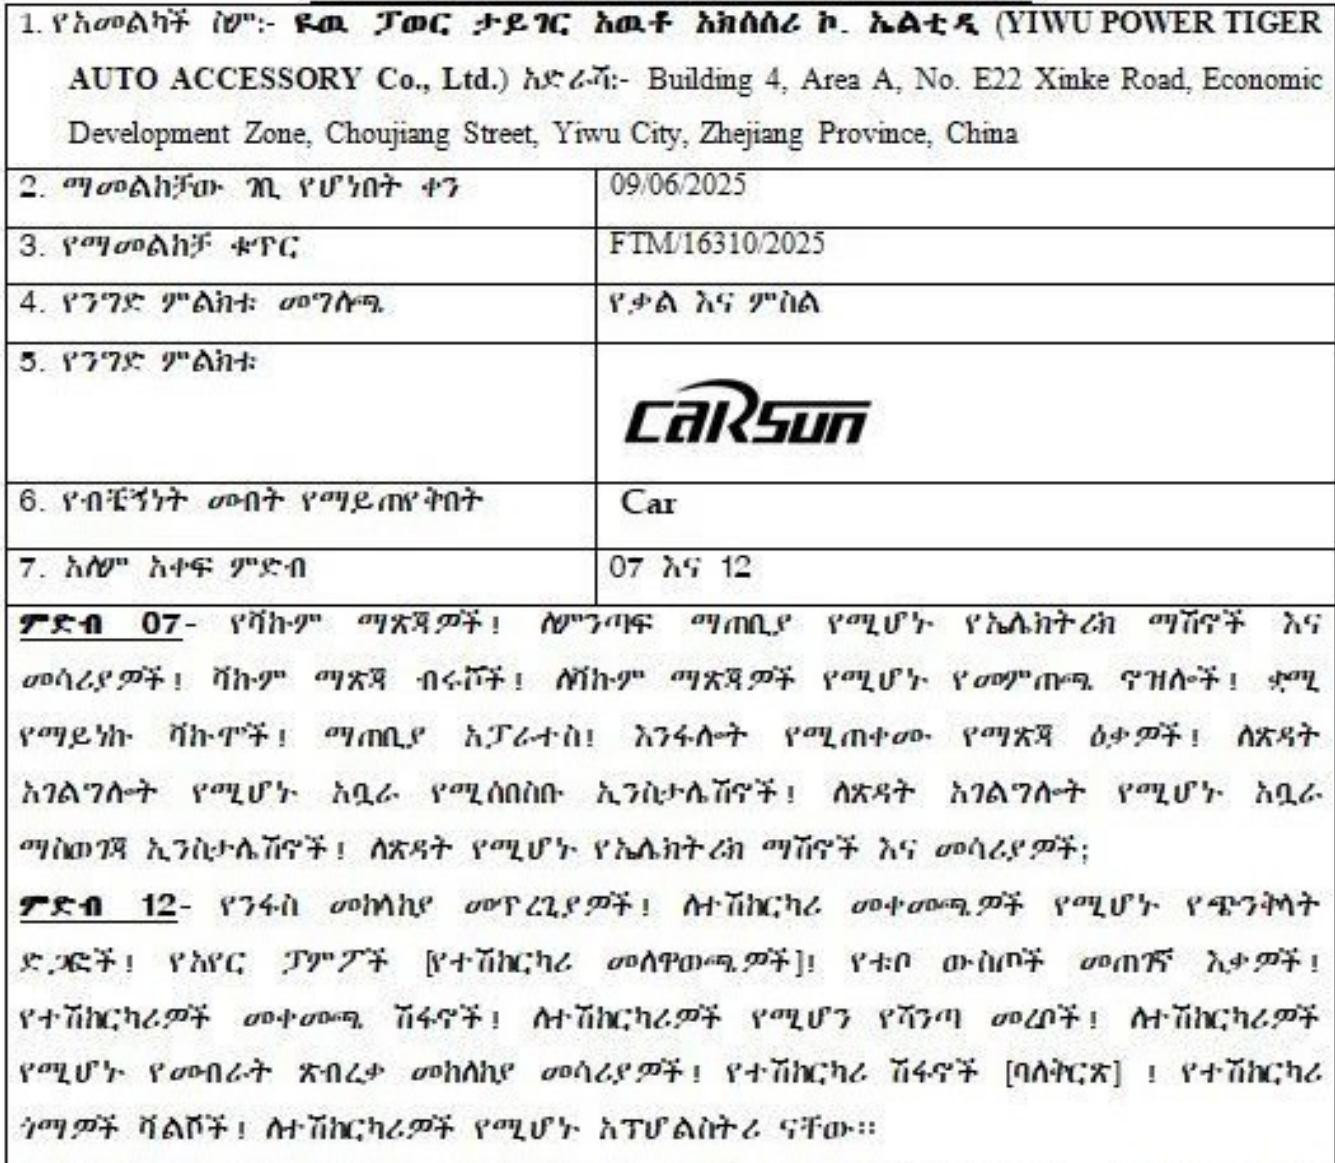 1. የአመልካች ስም:- ዪዉ ፓወር ታይገር አዉቶ አክሰሰሪ ኮ. ኤልቲዲ (YIWU POWER TIGER
AUTO ACCESSORY Co., Ltd.) አድራሻ:- Building 4, Area A, No. E22 Xinke Road, Economic
Development Zone, Choujiang Street, Yiwu City, Zhejiang Province, China
2. ማመልከቻው ገቢ የሆነበት ቀን 09/06/2025
3. የማመልከቻ ቁጥር FTM/16310/2025
4. የንግድ ምልክቱ መግለጫ የቃል እና ምስል
5. የንግድ ምልክቱ
CARSUN
6. የብቸኝነት መብት የማይጠየቅበት Car
7. አለም አቀፍ ምድብ 07 እና 12
ምድብ 07- የቫኩም ማጽጃዎች፤ ለምንጣፍ ማጠቢያ የሚሆኑ የኤሌክትሪክ ማሽኖች እና
መሳሪያዎች፤ ቫኩም ማጽጃ ብሩሾች፤ ለቫኩም ማጽጃዎች የሚሆኑ የመምጠጫ ኖዝሎች፤ ቋሚ
የማይነኩ ቫኩሞች፤ ማጠቢያ አፓራተስ፤ እንፋሎት የሚጠቀሙ የማጽጃ ዕቃዎች፤ ለጽዳት
አገልግሎት የሚሆኑ አቧራ የሚሰበስቡ ኢንስታሌሽኖች፤ ለጽዳት አገልግሎት የሚሆኑ አቧራ
ማስወገጃ ኢንስታሌሽኖች፤ ለጽዳት የሚሆኑ የኤሌክትሪክ ማሽኖች እና መሳሪያዎች;
ምድብ 12- የንፋስ መከላከያ መጥረጊያዎች፤ ለተሽከርካሪ መቀመጫዎች የሚሆኑ የጭንቅላት
ድጋፎች፤ የአየር ፓምፖች [የተሽከርካሪ መለዋወጫዎች]፤ የቱቦ ውስጦች መጠገኛ እቃዎች፤
የተሽከርካሪዎች መቀመጫ ሽፋኖች፤ ለተሽከርካሪዎች የሚሆን የሻንጣ መረቦች፤ ለተሽከርካሪዎች
የሚሆኑ የመብራት ጽብረቃ መከላከያ መሳሪያዎች፤ የተሽከርካሪ ሽፋኖች [ባለቅርጽ] ፤ የተሽከርካሪ
ጎማዎች ቫልቮች፤ ለተሽከርካሪዎች የሚሆኑ አፕሆልስትሪ ናቸው።